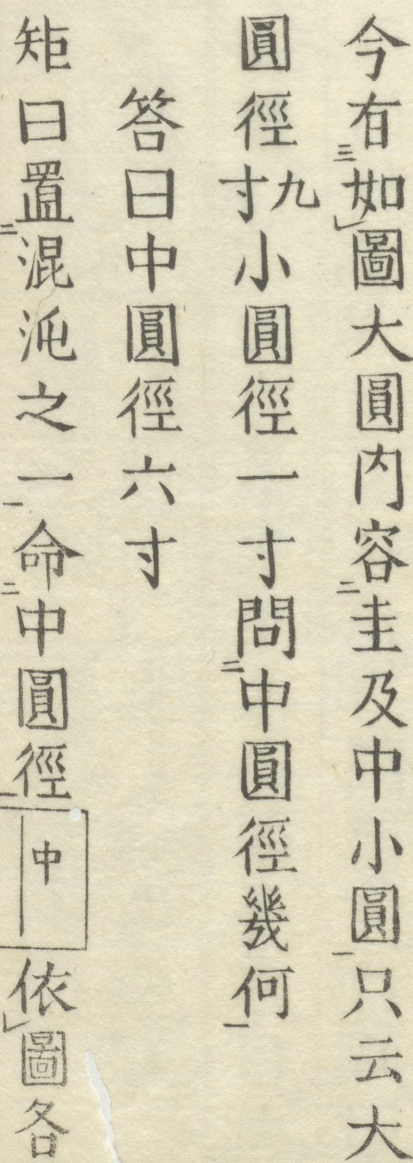 今有如圖大圓内容圭及中小圓只云大
圓徑九寸小圓徑一寸問中圓徑幾何
答曰中圓徑六寸
矩曰置混沌之一命中圓徑 中 依圖各